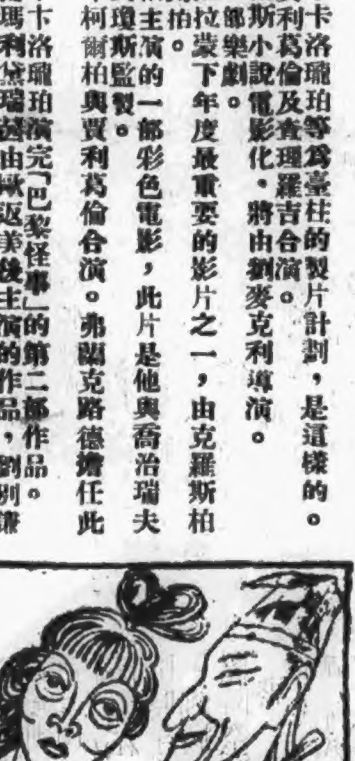 卡洛瓏珀等爲臺柱的製片計劃，是這樣的。
利葛倫及查理羅吉合演。
斯小說電影化。將由劉麥克利導演。
部樂劇。
拉蒙下年度最重要的影片之一，由克羅斯柏
拍。
主演的一部彩色電影，此片是他與喬治瑞夫
瓊斯監製。
柯爾柏與賈利葛倫合演。弗蘭克路德擔任此
卡洛瓏珀演完「巴黎怪事」的第二部作品。
瑪利黛瑞茜由歐返美後主演的作品，劉別謙